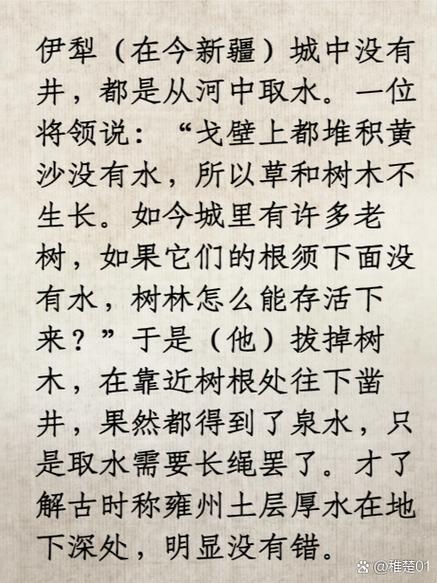 伊犁（在今新疆）城中没有
井，都是从河中取水。一位
将领说：“戈壁上都堆积黄
沙没有水，所以草和树木不
生长。如今城里有许多老
树，如果它们的根须下面没
有水，树林怎么能存活下
来？”于是（他）拔掉树
木，在靠近树根处往下凿
井，果然都得到了泉水，只
是取水需要长绳罢了。才了
解古时称雍州土层厚水在地
下深处，明显没有错。
@稚楚01